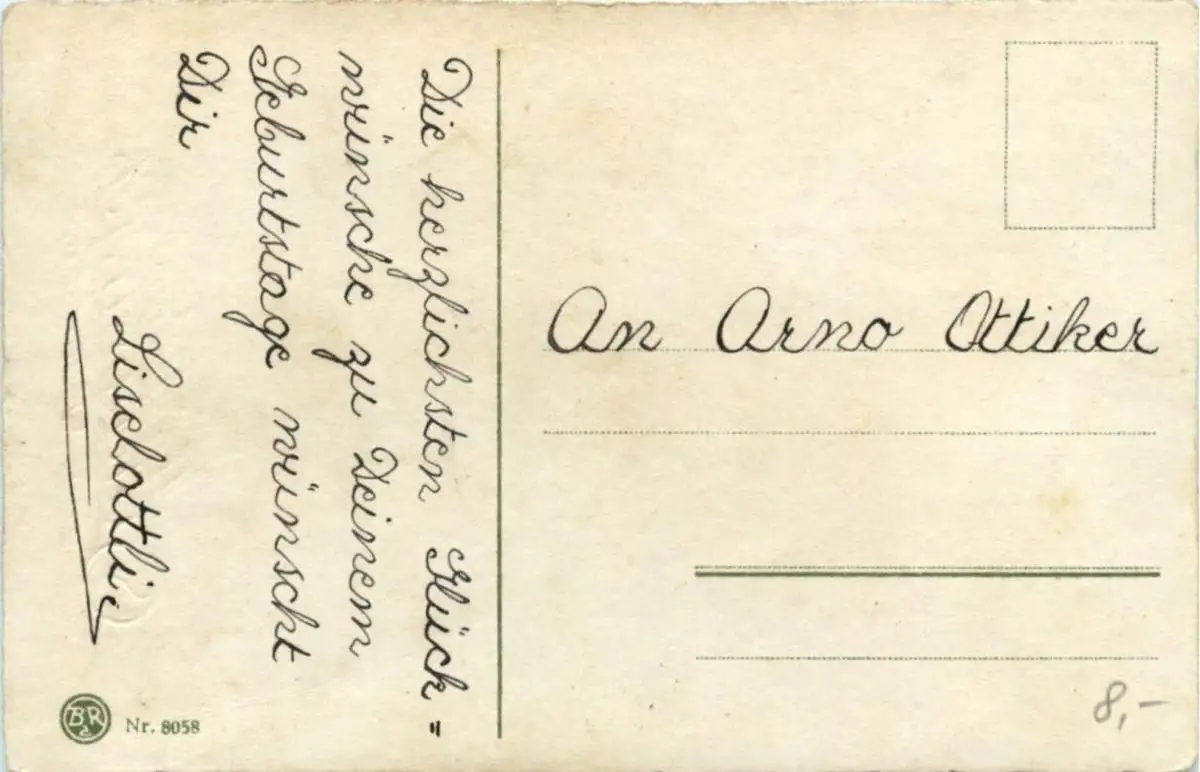 Die herzlichsten Glück=
wünsche zu Deinem
Geburtstage wünscht
Dir
Liselottli.
An Arno Ottiker
BR
Nr. 8058
8,-